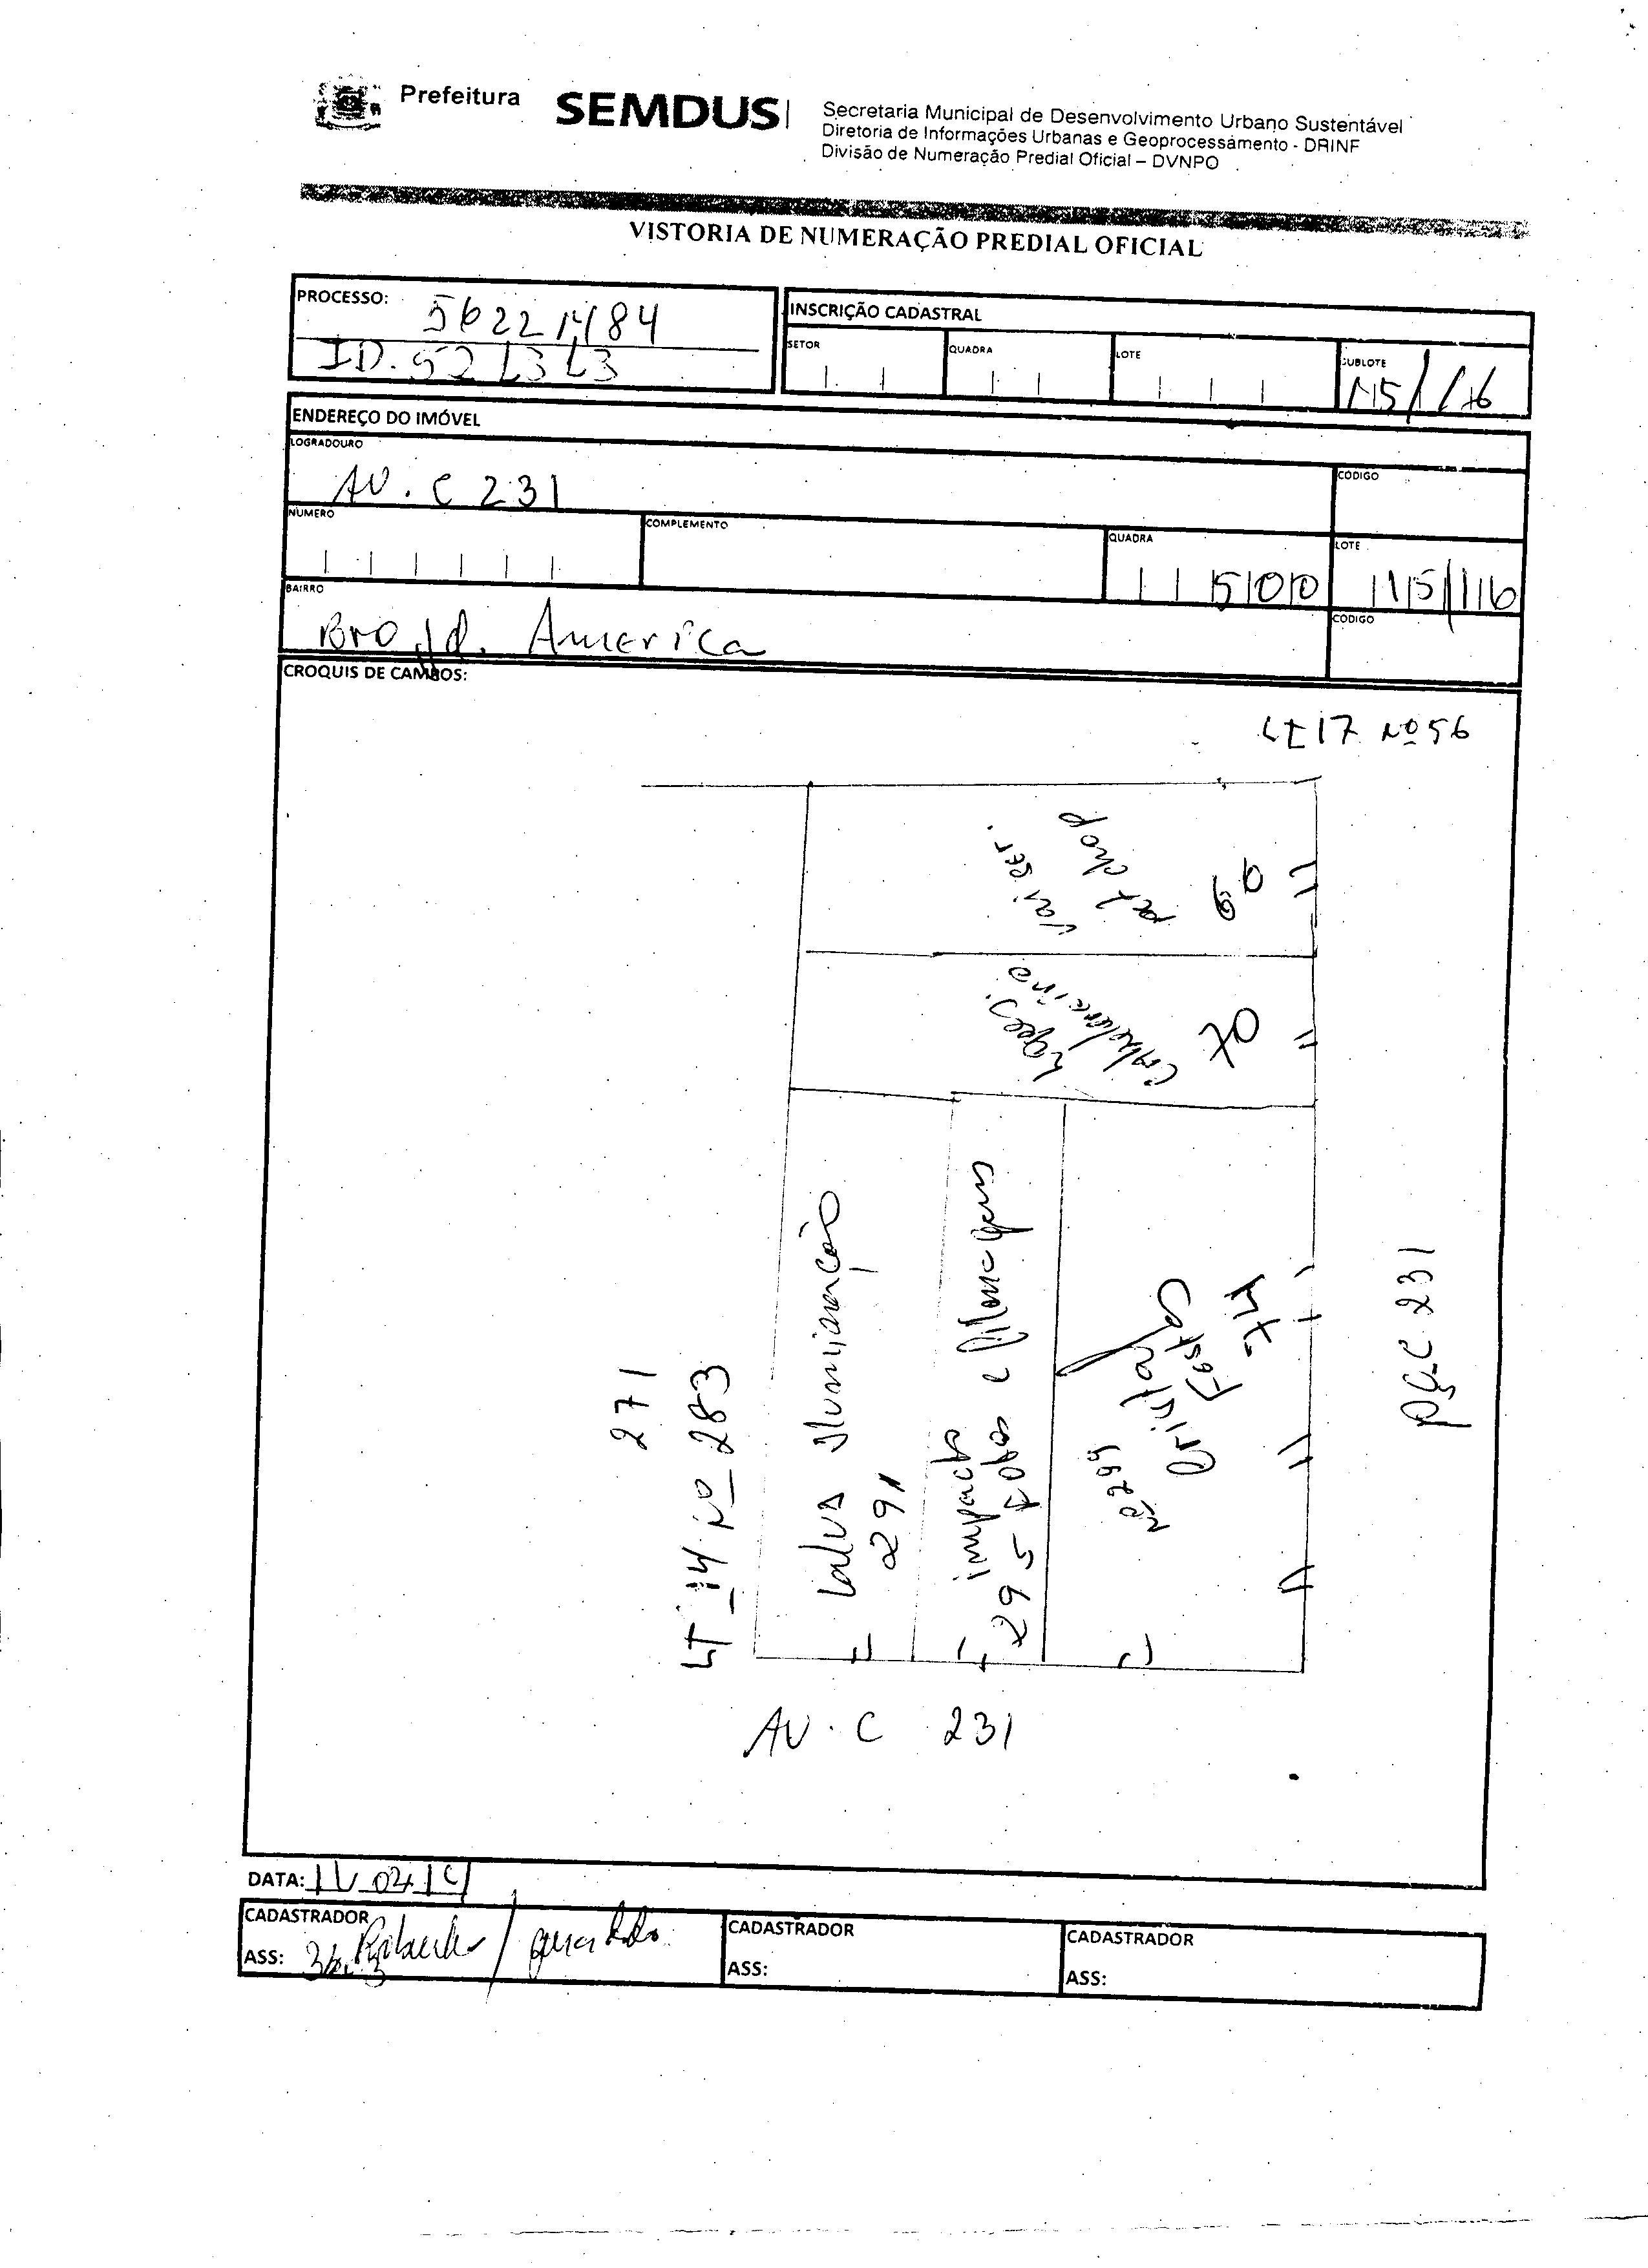 Prefeitura
SEMDUS
Secretaria Municipal de Desenvolvimento Urbano Sustentável
Diretoria de Informações Urbanas e Geoprocessamento - DRINF
Divisão de Numeração Predial Oficial – DVNPO
VISTORIA DE NUMERAÇÃO PREDIAL OFICIAL
PROCESSO:
ID.
INSCRIÇÃO CADASTRAL
SETOR
QUADRA
LOTE
SUBLOTE
15/16
ENDEREÇO DO IMÓVEL
LOGRADOURO
AV. C 231
CÓDIGO
NÚMERO
COMPLEMENTO
QUADRA
500
LOTE
15/16
BAIRRO
Bro Jd. America
CÓDIGO
CROQUIS DE CAMPOS:
LT 17 Nº 56
vai ser
pet chop
60
Lopes
70
271
LT 14 Nº 283
291
impacto
295
Nº 299
Cristal
Festas
74
PÇ C 231
AV. C 231
DATA:
CADASTRADOR
ASS:
CADASTRADOR
ASS:
CADASTRADOR
ASS: